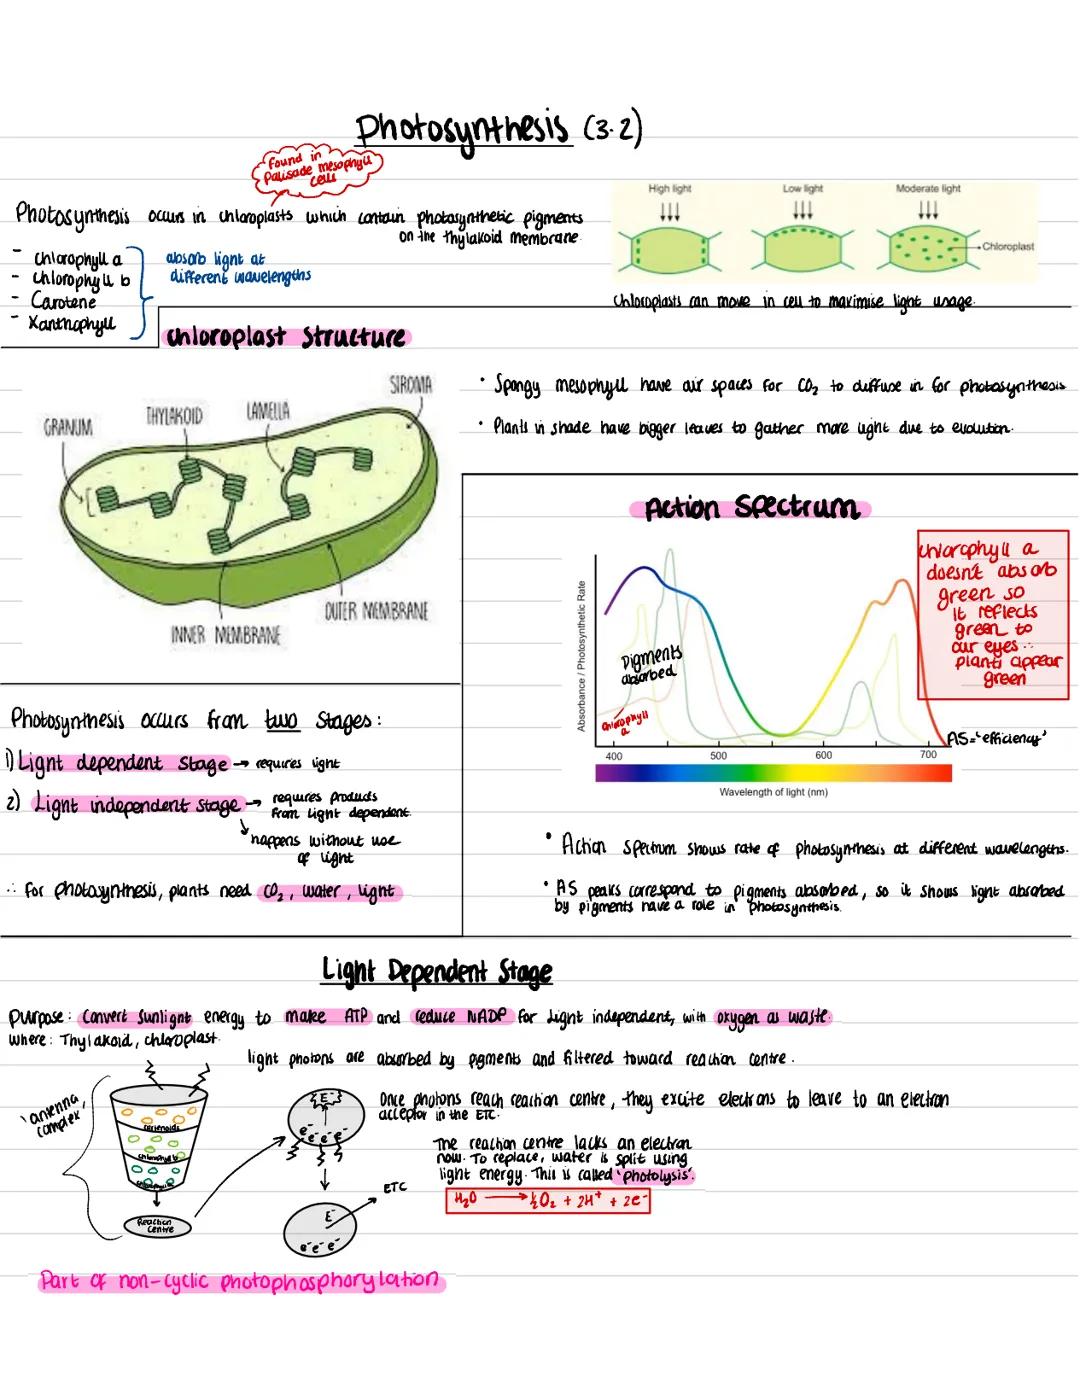 Photosynthesis (3.2)
Found in
Palisade mesophyll
cells
Photosynthesis occurs in chloroplasts which contain photosynthetic pigments
on the thylakoid membrane.
- Chlorophyll a
- Chlorophyll b
- Carotene
- Xanthophyll
absorb light at
different wavelengths
High light
Low light
Moderate light
Chloroplast
Chloroplasts can move in cell to maximise light usage.
Chloroplast Structure
GRANUM
THYLAKOID
LAMELLA
STROMA
OUTER MEMBRANE
INNER MEMBRANE
• Spongy mesophyll have air spaces for CO₂ to diffuse in for photosynthesis
• Plants in shade have bigger leaves to gather more light due to evolution.
Action Spectrum
Absorbance / Photosynthetic Rate
Pigments
absorbed
Chlorophyll
a
400
500
600
700
Wavelength of light (nm)
AS = 'efficiency'
Chlorophyll a
doesn't absorb
green so
it reflects
green to
our eyes ∴
plants appear
green
• Action Spectrum shows rate of photosynthesis at different wavelengths.
• AS peaks correspond to pigments absorbed, so it shows light absorbed
by pigments have a role in photosynthesis.
Photosynthesis occurs from two stages:
1) Light dependent stage → requires light
2) Light independent stage → requires products
from light dependent.
happens without use
of light
∴ for photosynthesis, plants need CO₂, water, light
Light Dependent Stage
Purpose: Convert Sunlight energy to make ATP and reduce NADP for light independent, with oxygen as waste.
Where: Thylakoid, chloroplast.
light photons are absorbed by pigments and filtered toward reaction centre.
'antenna
complex'
carotenoids
chlorophyll b
chlorophyll a
Reaction
Centre
E⁻
e⁻ e⁻ e⁻ e⁻
Once photons reach reaction centre, they excite electrons to leave to an electron
acceptor in the ETC.
The reaction centre lacks an electron
now. To replace, water is split using
light energy. This is called 'photolysis'.
H₂O → ½O₂ + 2H⁺ + 2e⁻
ETC
E⁻
e⁻ e⁻ e⁻
Part of non-cyclic photophosphorylation